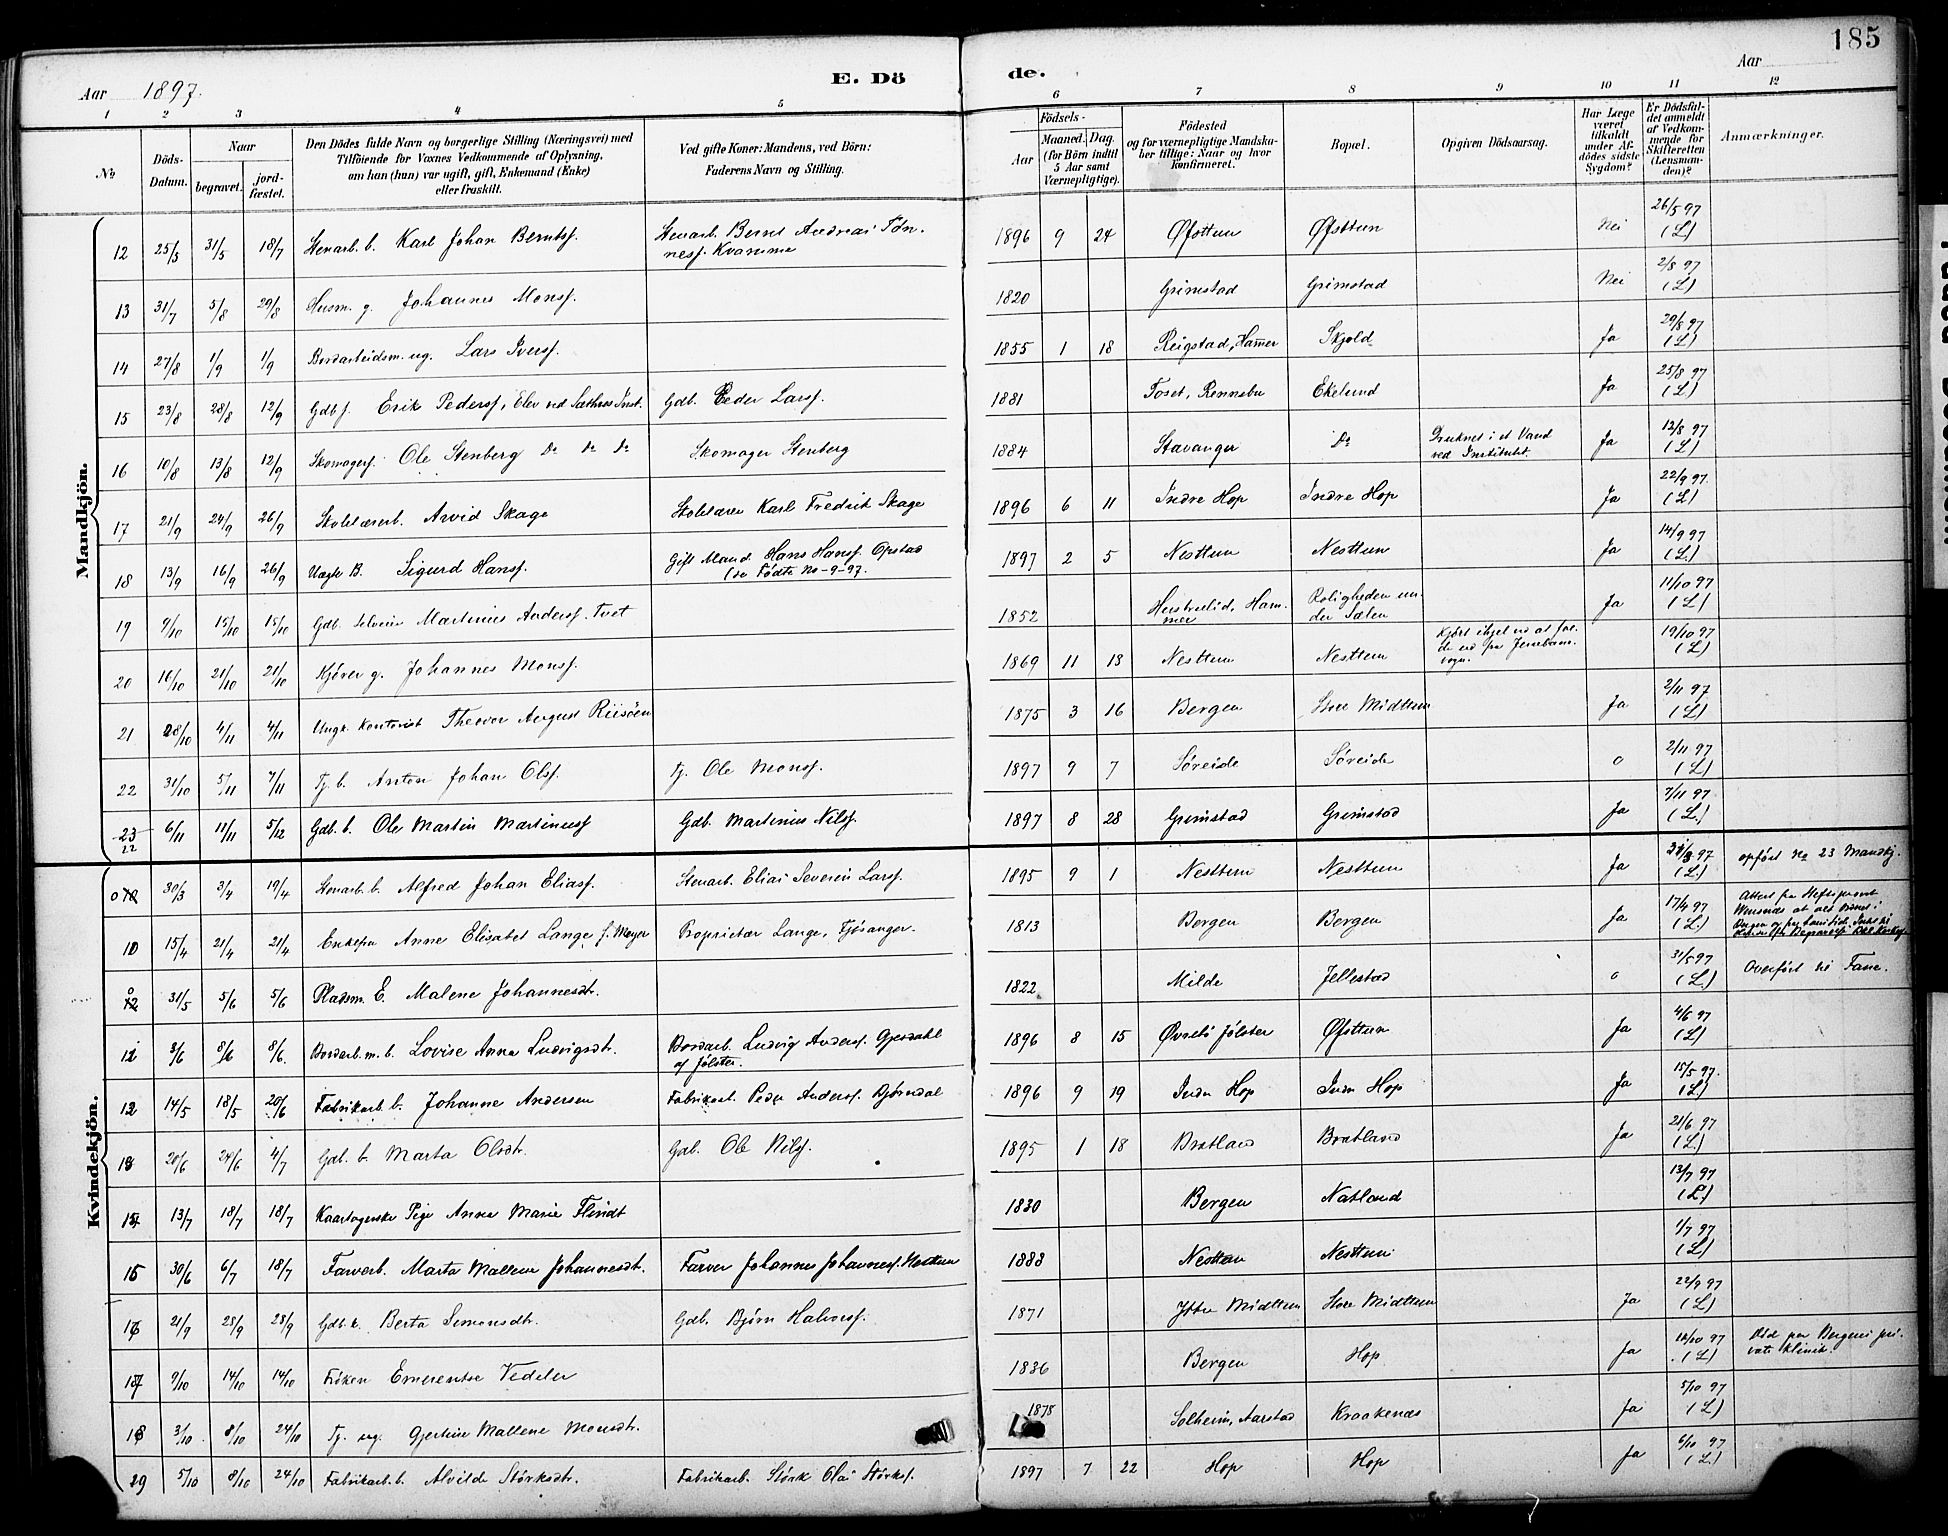 185
Aar 1897.
E. Dö
de.
Aar
1 2 3 4 5
6 7 8 9 10 11 12
No
Döds-Datum.
Naar
begravet.
jordfæstet.
Den Dödes fulde Navn og borgerlige Stilling (Næringsvei) med
Tilföiende for Voxnes Vedkommende af Oplysning,
om han (hun) var ugift, gift, Enkemand (Enke)
eller fraskilt.
Ved gifte Koner: Mandens, ved Börn:
Faderens Navn og Stilling.
Födsels-
Aar
Maaned. Dag.
(for Börn indtil
5 Aar samt
Værnepligtige).
Födested
og for værnepligtige Mandska-
ber tillige: Naar og hvor
konfirmeret.
Bopæl.
Opgiven Dödsaarsag.
Har Læge
været
tilkaldt
under Af-
dödes sidste
Sygdom?
Er Dödsfal-
det anmeldt
af Vedkom-
mende for
Skifteretten
(Lensman-
den)?
Anmærkninger.
Mandkjön.
12 25/5 31/5 18/7 Stenarb. b. Karl Johan Berntsf. Stenarb. Bernt Andreas Tön-
nesf. Kvamme 1896 9 24 Øfsttun Øfsttun Nei 26/5 97 (L)
13 31/7 5/8 29/8 Husm. g. Johannes Monsf. 1820 Grimstad Grimstad Nei 2/8 97 (L)
14 27/8 1/9 1/9 Bordarbeidsm. ug. Lars Iversf. 1855 1 18 Reigstad, Hamer Skjold Ja 29/8 97 (L)
15 23/8 28/8 12/9 Gdb f. Erik Pedersf, Elev ved Sæthres Inst. Gdb. Peder Larsf. 1881 Foset, Rennebu Ekelund Ja 25/8 97 (L)
16 10/8 13/8 12/9 Skomagerf. Ole Stenberg Do Do Do Skomager Stenberg 1884 Stavanger Do Druknet i et Vand
ved Institutet. Ja 12/8 97 (L)
17 21/9 24/9 26/9 Skolelærerb. Arvid Skage Skolelærer Karl Fredrik Skage 1896 6 11 Indre Hop Indre Hop Ja 22/9 97. (L)
18 13/9 16/9 26/9 Uægte B. Sigurd Hansf. Gift Mand Hans Hansf. Opstad
(se Fødte No-9-97. 1897 2 5 Nesttun Nesttun Ja 14/9 97 (L.)
19 9/10 15/10 15/10 Gdb. Selveier Martinius Andersf. Tvet 1852 Herstvelid, Ham-
mer Roligheden un-
der Sælen Ja 11/10 97 (L)
20 16/10 21/10 21/10 Kjører g. Johannes Monsf. 1869 11 13 Nesttun Nesttun Kjørt ihjel ved at fal-
de ned fra Jernbane-
vogn. 19/10 97 (L)
21 28/10 4/11 4/11 Ungk. Kontorist Theodor August Riisöen 1875 3 16 Bergen Store Midttun Ja 2/11 97 (L)
22 31/10 5/11 7/11 Tj. b. Anton Johan Olsf. Tj. Ole Monsf. 1897 9 7 Søreide Søreide o 2/11 97 (L)
23 22 6/11 11/11 5/12 Gdb. b. Ole Martin Martinusf Gdb. Martinius Nilsf. 1897 8 28 Grimstad Grimstad Ja 7/11 97. (L.)
Kvindekjön.
30/3 3/4 19/4 Stenarb. b. Alfred Johan Eliasf. Stenarb. Elias Severin Larsf. 1895 9 1 Nesttun Nesttun Ja 31/3 97 (L.) opført No 23 Mandkj.
10 15/4 21/4 21/4 Enkefru Anne Elisabet Lange f. Meyer Proprietær Lange, Fjösanger. 1813 Bergen Bergen Ja 17/4 97 (L.) Attest fra Stiftsprovst
31/5 5/6 5/6 Pladsm. E. Malene Johannesdt. 1822 Milde Jellestad o 31/5 97 (L.) Overført til Fane.
3/6 8/6 8/6 Bordarb. m. b. Lovise Anna Ludvigsdt. Bordarb. Ludvig Andersf. Gjesdahl
af Jølster. 1896 8 15 Øvrebö Jølster Øfsttun Ja 4/6 97 (L)
12 14/5 18/5 20/6 Fabrikarb. b. Johanne Andersen Fabrikarb. Peder Andersf. Bjørndal 1896 9 19 Indre Hop Indre Hop Ja 15/5 97. (L)
20/6 24/6 4/7 Gdb. b. Marta Olsdt. Gdb. Ole Nilsf. 1895 1 18 Bratland Bratland Ja 21/6 97 (L)
13/7 18/7 18/7 Kaartagerske Pige Anna Marie Flindt 1830 Bergen Natland 13/7 97 (L)
15 30/6 6/7 18/7 Farverb. Marta Mallene Johannesdt. Farver Johannes Johannesf. Nesttun 1888 Nesttun Nesttun 1/7 97 (L)
16 21/9 28/9 28/9 Gdb. k. Berta Simonsdt. Gdb. Björn Halvorsf. 1871 Ytre Midttun Store Midttun Ja 22/9 97 (L)
17 9/10 14/10 14/10 Frøken Emerentse Vedeler 1836 Bergen Hop Ja 12/10 97 (L) Død paa Bergens pri-
vate klinik.
18 3/10 8/10 24/10 Tj. ug. Gjertine Mallene Monsdt. 1878 Solheim, Aarstad Kraakenæs Ja 5/10 97 (L)
29 5/10 8/10 24/10 Fabrikarb. b. Alvilde Størksdt. Fabrikarb. Störk Olai Störksf. 1897 7 22 Hop Hop Ja 6/10 97 (L.)